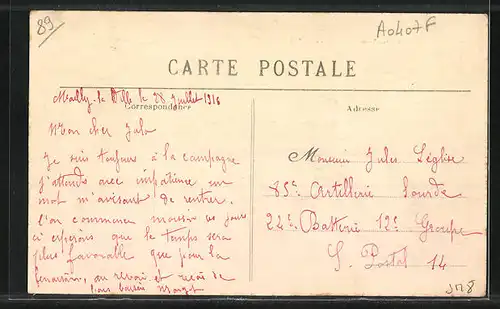 89
A0407F
CARTE POSTALE
Mailly-la-Ville le 28 Juillet 1916
Correspondance
Adresse
Mon cher Julo
Je suis toujours à la campagne
j'attends avec impatience un
mot m'avisant de rentrer.
l'on commence ces jours
ci espérons que le temps sera
plus favorable que pour la
au revoir et reçois de
bons baisers Margot
Monsieur Jules Léglise
85e Artillerie Lourde
22e Batterie 12e Groupe
S. Postal 14
JM8